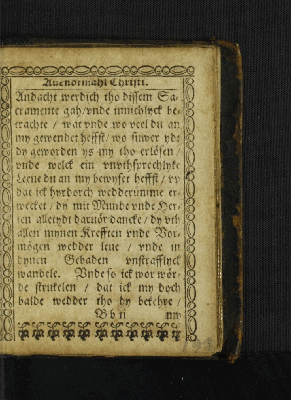 Auenormahl Christi.
Andacht werdich tho dissem Sa-
cramente gah / vnde innichlyck be-
trachte / wat vnde wo veel du an
my gewendet heffst / wo suwer ydt
dy geworden ys my tho erlösen /
vnde welck ein vnvthsprecklyke
Leeue du an my bewyset heffst / vp
dat ick hyrdorch wedderumme er-
wecket / dy mit Munde vnde Her-
ten alletydt daruör dancke / dy vth
allen mynen Krefften vnde Vor-
mögen wedder leue / vnde in
dynen Gebaden vnstrafflyck
wandele. Vnde so ick wor wör-
de strukelen / dat ick my doch
balde wedder tho dy bekehre /
B b v